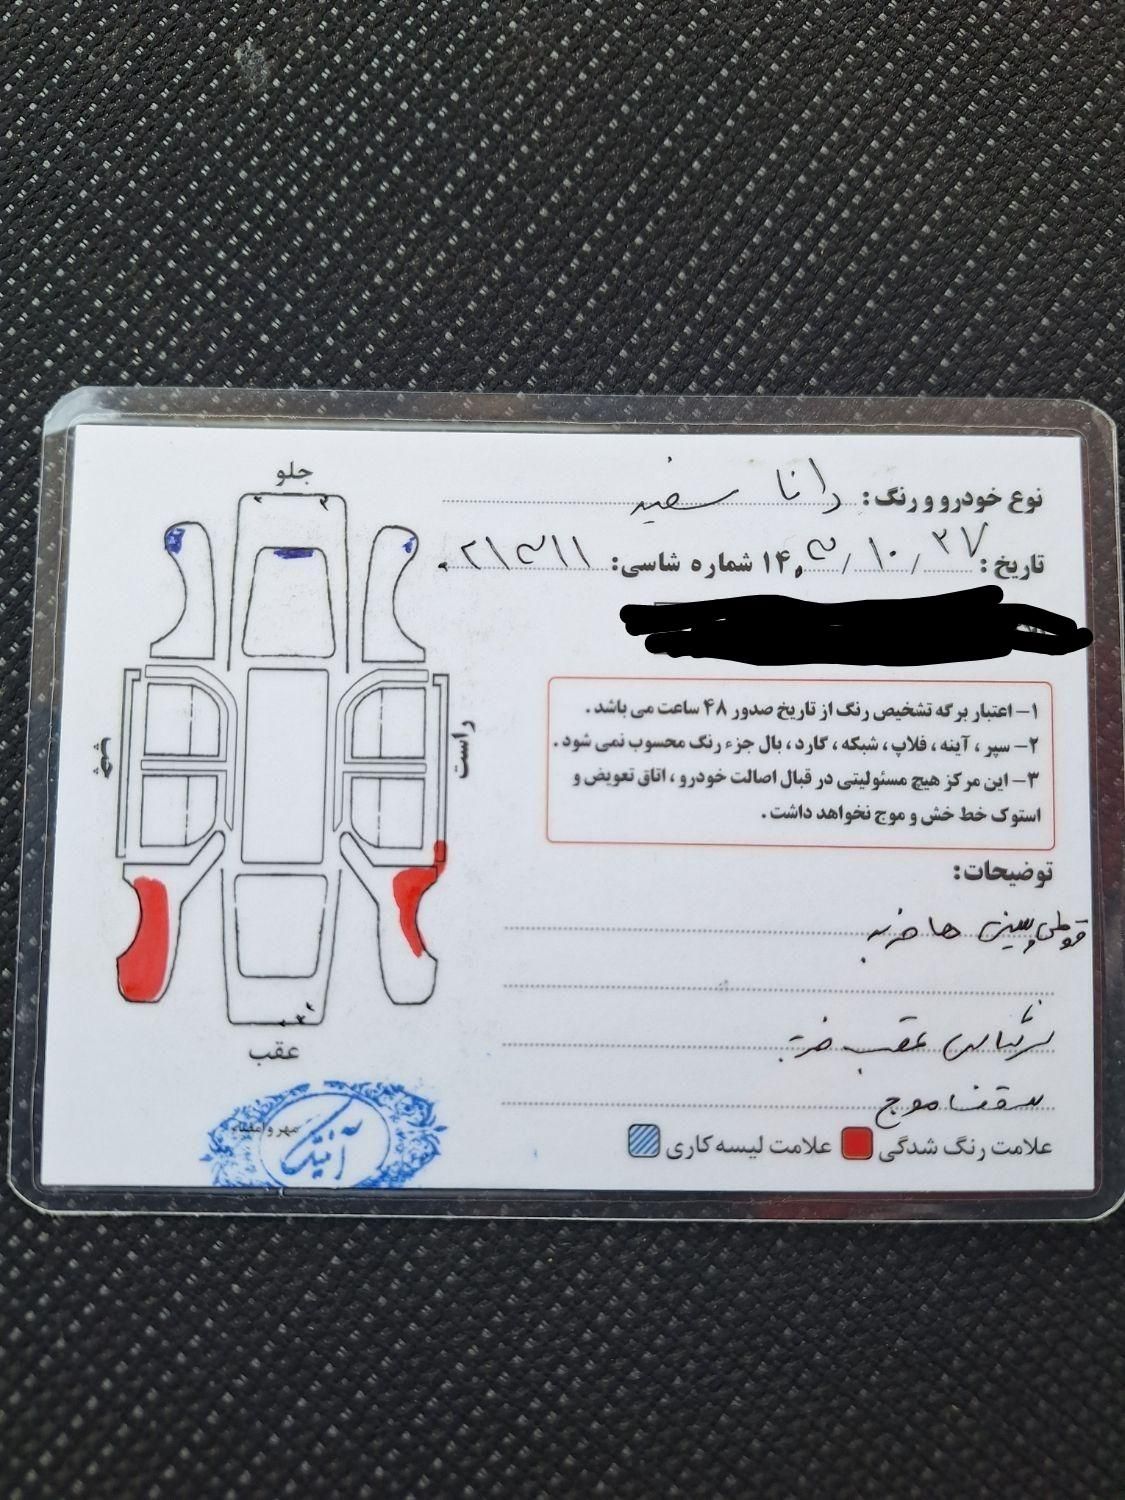 جلو
نوع خودرو و رنگ: دانا سفید
تاریخ: ۲۷ / ۱۰ / ۱۴۰۳ شماره شاسی:
راست
چپ
۱- اعتبار برگه تشخیص رنگ از تاریخ صدور ۴۸ ساعت می باشد.
۲- سپر ، آینه ، فلاپ ، شبکه ، گارد ، بال جزء رنگ محسوب نمی شود.
۳- این مرکز هیچ مسئولیتی در قبال اصالت خودرو ، اتاق تعویض و
استوک خط خش و موج نخواهد داشت.
توضیحات:
ها ضربه
عقب ضربه
سقف موج
عقب
علامت رنگ شدگی
علامت لیسه کاری
مهر و امضاء